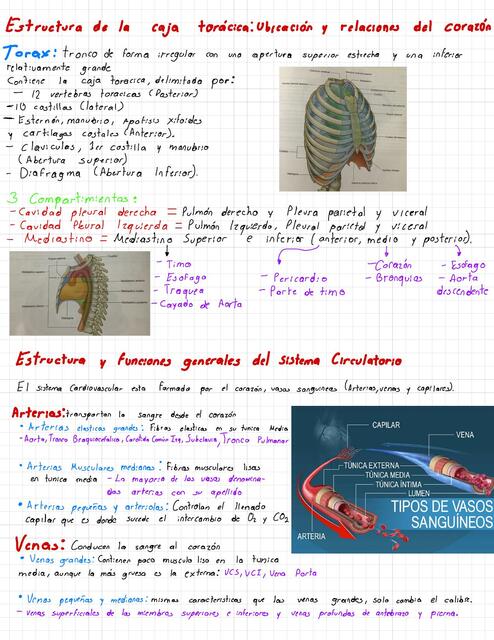 Estructura de la caja torácica: Ubicación y relaciones del corazón
Torax: tronco de forma irregular con una apertura superior estrecha y una inferior
relativamente grande
Contiene la caja toracica, delimitado por:
- 12 vertebras toracicas (Posterior)
- 10 costillas (lateral)
- Esternón, manubrio, Apofisis xifoides
y cartilagos costales (Anterior).
- Claviculas, 1er costilla y manubrio
(Abertura superior)
- Diafragma (Abertura Inferior).
3 Compartimientos:
- Cavidad pleural derecha = Pulmón derecho y Pleura parietal y viceral
- Cavidad Pleural Izquierda = Pulmón Izquierdo, Pleural parietal y viceral
- Mediastino = Mediastino Superior e inferior (anterior, medio y posterior).
- Timo
- Esofago
- Traquea
- Cayado de Aorta
- Pericardio
- Parte de timo
- Corazón
- Bronquias
- Esofago
- Aorta
descendente
Estructura y funciones generales del Sistema Circulatorio
El sistema Cardiovascular esta formado por el corazón, vasos sanguineos (Arterias, venas y capilares).
Arterias: transportan la sangre desde el corazón
• Arterias elasticas grandes: Fibras elasticas en su tunica Media
- Aorta, Tronco Braquiocefalico, Carotida Común Izq, Subclavia, Tronco Pulmonar
• Arterias Musculares medianas: Fibras musculares lisas
en tunica media - La mayoria de los vasos denomina-
dos arterias con su apellido
• Arterias pequeñas y arteriolas: Controlan el llenado
capilar que es donde sucede el intercambio de O2 y CO2
CAPILAR
VENA
TÚNICA EXTERNA
TÚNICA MEDIA
TÚNICA ÍNTIMA
LUMEN
TIPOS DE VASOS
SANGUÍNEOS
ARTERIA
Venas: Conducen la sangre al corazón
• Venas grandes: Contienen poco musculo liso en la tunica
media, aunque la más gruesa es la externa: VCS, VCI, Vena Porta
• Venas pequeñas y medianas: mismas caracteristicas que las venas grandes, solo cambia el calibre.
- venas superficiales de los miembros superiores e inferiores y venas profundas de antebrazo y pierna.